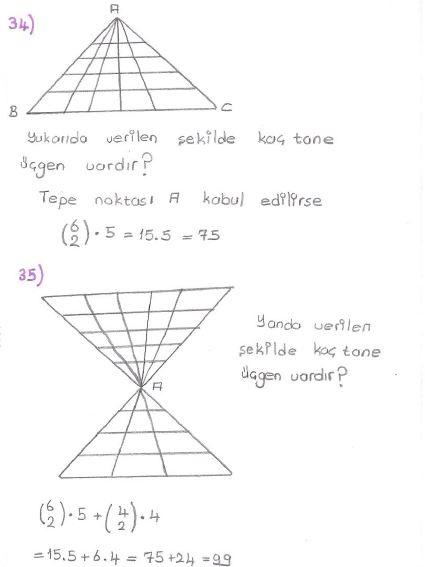 34)
A
B C
Yukarıda verilen şekilde kaç tane
üçgen vardır?
Tepe noktası A kabul edilirse
(6 2) · 5 = 15.5 = 75
35)
A
Yanda verilen
şekilde kaç tane
üçgen vardır?
(6 2) · 5 + (4 2) · 4
= 15.5 + 6.4 = 75 + 24 = 99